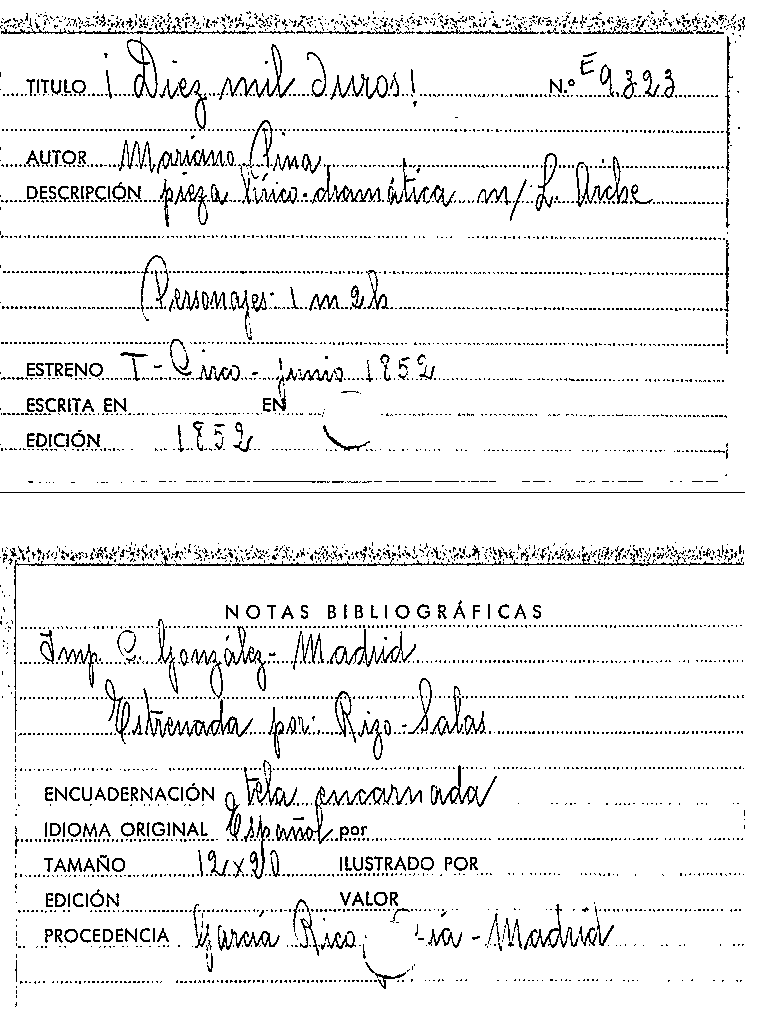 TITULO ¡Diez mil duros! N.º E 9.323
AUTOR Mariano Pina
DESCRIPCIÓN pieza lírico-dramática m/ L. Arche
Personajes- 1 m 2 h
ESTRENO T- Circo - junio 1852
ESCRITA EN EN
EDICIÓN 1852
NOTAS BIBLIOGRÁFICAS
Imp C. González- Madrid
Estrenada por: Rizo-Salas
ENCUADERNACIÓN tela encarnada
IDIOMA ORIGINAL Español por
TAMAÑO 12x20 ILUSTRADO POR
EDICIÓN VALOR
PROCEDENCIA García Rico - Madrid